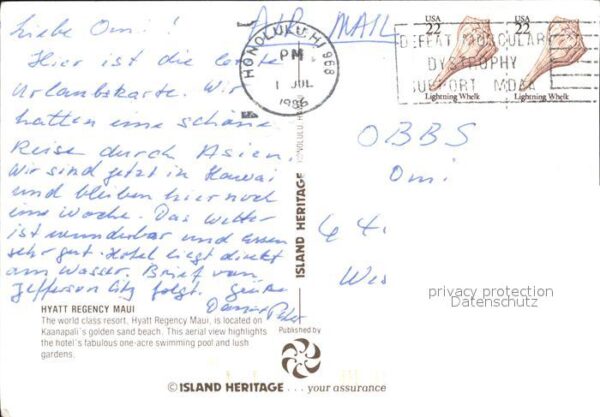 Liebe Omi!
Hier ist die letzte
Urlaubskarte. Wir
hatten eine schöne
Reise durch Asien.
Wir sind jetzt in Hawai
und bleiben hier noch
eine Woche. Das Wetter
ist wunderbar und Essen
sehr gut. Hotel liegt direkt
am Wasser. Brief von
Jefferson City folgt. Grüße
Peter
HYATT REGENCY MAUI
The world class resort, Hyatt Regency Maui, is located on
Kaanapali's golden sand beach. This aerial view highlights
the hotel's fabulous one-acre swimming pool and lush
gardens.
AIR MAIL
HONOLULU, HI 968
PM
1 JUL
1986
DEFEAT MUSCULAR
DYSTROPHY
SUPPORT MDA
USA
22
Lightning Whelk
USA
22
Lightning Whelk
OBBS
Omi
64.
Wes
ISLAND HERITAGE
HONOLULU, HAWAII
Published by
© ISLAND HERITAGE . . . your assurance
privacy protection
Datenschutz